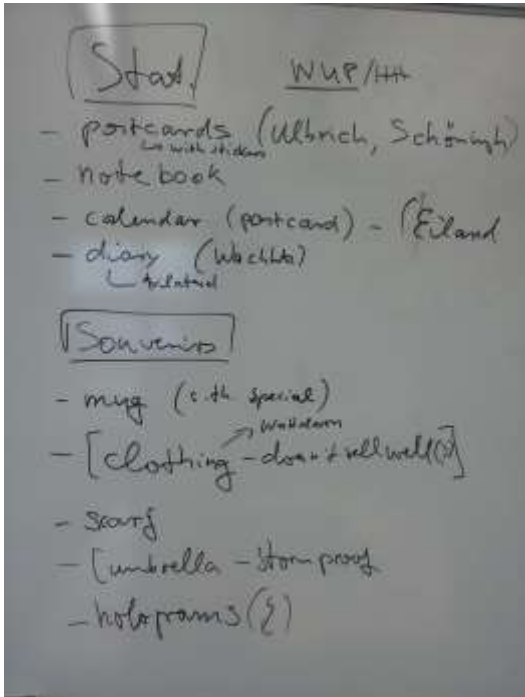 Stat. WUP/HH
- postcards (Ulbrich, Schöningh)
↳ with stickers
- notebook
- calendar (postcard) - (Eiland
- diary
Souvenirs
- mug (s.th. special)
- [clothing - doesn't sell well(?)]
- scarf
- [umbrella - stormproof
- holograms (?)